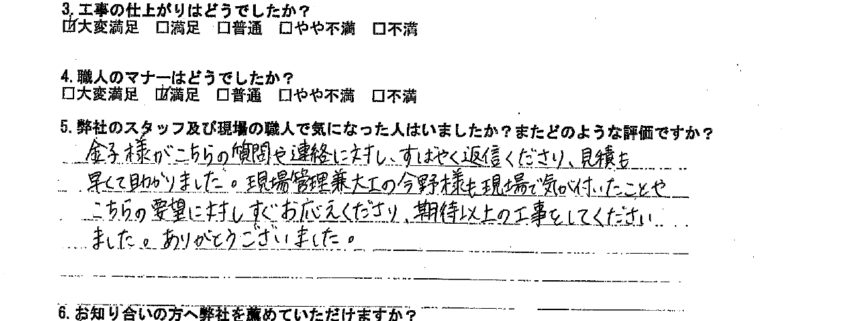 3. 工事の仕上がりはどうでしたか?
☑大変満足 □満足 □普通 □やや不満 □不満
4. 職人のマナーはどうでしたか?
□大変満足 ☑満足 □普通 □やや不満 □不満
5. 弊社のスタッフ及び現場の職人で気になった人はいましたか?またどのような評価ですか?
金子様がこちらの質問や連絡に対し、すばやく返信くださり、見積も
早くて助かりました。現場管理兼大工の今野様も現場で気が付いたことや
こちらの要望に対しすぐお応えくださり、期待以上の工事をしてください
ました。ありがとうございました。
6. お知り合いの方へ弊社を薦めていただけますか?